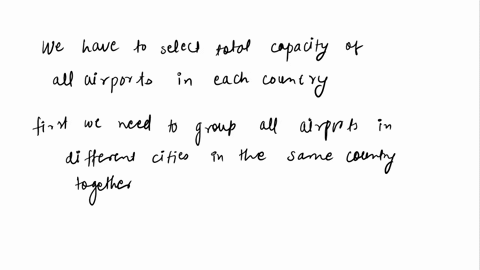 We have to select total capacity of
all airports in each country
first we need to group all airports in
different cities in the same country
together